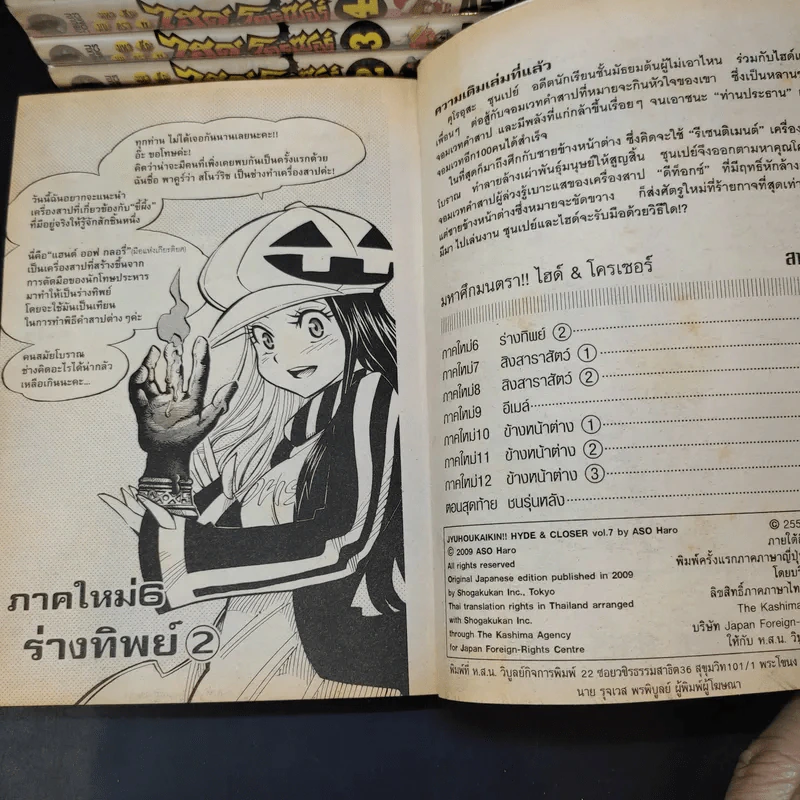 ทุกท่าน ไม่ได้เจอกันนานเลยนะคะ!!
อ๊ะ ขอโทษค่ะ!
คิดว่าน่าจะมีคนที่เพิ่งเคยพบกันเป็นครั้งแรกด้วย
ฉันชื่อ พาคูร์ว่า สโนว์วิช เป็นช่างทำเครื่องสาปค่ะ!
วันนี้ฉันอยากจะแนะนำ
เครื่องสาปที่เกี่ยวข้องกับ"ขี้ผึ้ง"
ที่มีอยู่จริงให้รู้จักสักชิ้นหนึ่ง
นี่คือ"แฮนด์ ออฟ กลอรี่"(มือแห่งเกียรติยศ)
เป็นเครื่องสาปที่สร้างขึ้นจาก
การตัดมือของนักโทษประหาร
มาทำให้เป็นร่างทิพย์
โดยจะใช้มันเป็นเทียน
ในการทำพิธีคำสาปต่างๆค่ะ
คนสมัยโบราณ
ช่างคิดอะไรได้น่ากลัว
เหลือเกินนะคะ...
ภาคใหม่6
ร่างทิพย์ ②
ความเดิมเล่มที่แล้ว
คุโรอุสะ ชุนเปย์ อดีตนักเรียนชั้นมัธยมต้นผู้ไม่เอาไหน ร่วมกับไฮด์
เพื่อนๆ ต่อสู้กับจอมเวทคำสาปที่หมายจะกินหัวใจของเขา ซึ่งเป็นหลาน
จอมเวทคำสาป และมีพลังที่แก่กล้าขึ้นเรื่อยๆ จนเอาชนะ "ท่านประธาน"
จอมเวทอีก100คนได้สำเร็จ
ในที่สุดก็มาถึงศึกกับชายข้างหน้าต่าง ซึ่งคิดจะใช้ "รีเซนติเมนต์" เครื่อง
โบราณ ทำลายล้างเผ่าพันธุ์มนุษย์ให้สูญสิ้น ชุนเปย์จึงออกตามหาคุณโด
จอมเวทคำสาปผู้ล่วงรู้เบาะแสของเครื่องสาป "ดีท็อกซ์" ที่มีฤทธิ์หักล้าง
แต่ชายข้างหน้าต่างซึ่งหมายจะขัดขวาง ก็ส่งศัตรูใหม่ที่ร้ายกาจที่สุดเท่า
มีมา ไปเล่นงาน ชุนเปย์และไฮด์จะรับมือด้วยวิธีใด!?
มหาศึกมนตรา!! ไฮด์ & โครเซอร์
ภาคใหม่6 ร่างทิพย์ ②
ภาคใหม่7 สิงสาราสัตว์ ①
ภาคใหม่8 สิงสาราสัตว์ ②
ภาคใหม่9 อีเมล์
ภาคใหม่10 ข้างหน้าต่าง ①
ภาคใหม่11 ข้างหน้าต่าง ②
ภาคใหม่12 ข้างหน้าต่าง ③
ตอนสุดท้าย ชนรุ่นหลัง
JYUHOUKAIKIN!! HYDE & CLOSER vol.7 by ASO Haro
© 2009 ASO Haro
All rights reserved
Original Japanese edition published in 2009
by Shogakukan Inc., Tokyo
Thai translation rights in Thailand arranged
with Shogakukan Inc.
through The Kashima Agency
for Japan Foreign-Rights Centre
© 255
ภายใต้
พิมพ์ครั้งแรกภาคภาษาญี่ปุ่
โดย
ลิขสิทธิ์ภาคภาษาไทย
The Kashima
บริษัท Japan Foreign-
ให้กับ ห.ส.น. วิ
พิมพ์ที่ ห.ส.น. วิบูลย์กิจการพิมพ์ 22 ซอยวชิรธรรมสาธิต36 สุขุมวิท101/1 พระโขนง
นาย รุจเวส พรพิบูลย์ ผู้พิมพ์ผู้โฆษณา
4
3
2